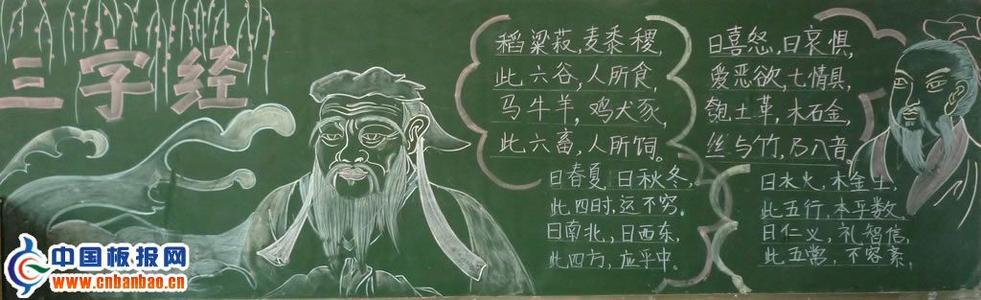 三字经
稻粱菽,麦黍稷,
此六谷,人所食,
马牛羊,鸡犬豕,
此六畜,人所饲。
曰春夏,曰秋冬,
此四时,远不穷。
曰南北,曰西东,
此四方,应乎中。
曰喜怒,曰哀惧,
爱恶欲,七情具,
匏土革,木石金,
丝与竹,乃八音。
曰水火,木金土,
此五行,本乎数,
曰仁义,礼智信,
此五常,不容紊,
中国板报网
www.cnbanbao.cn